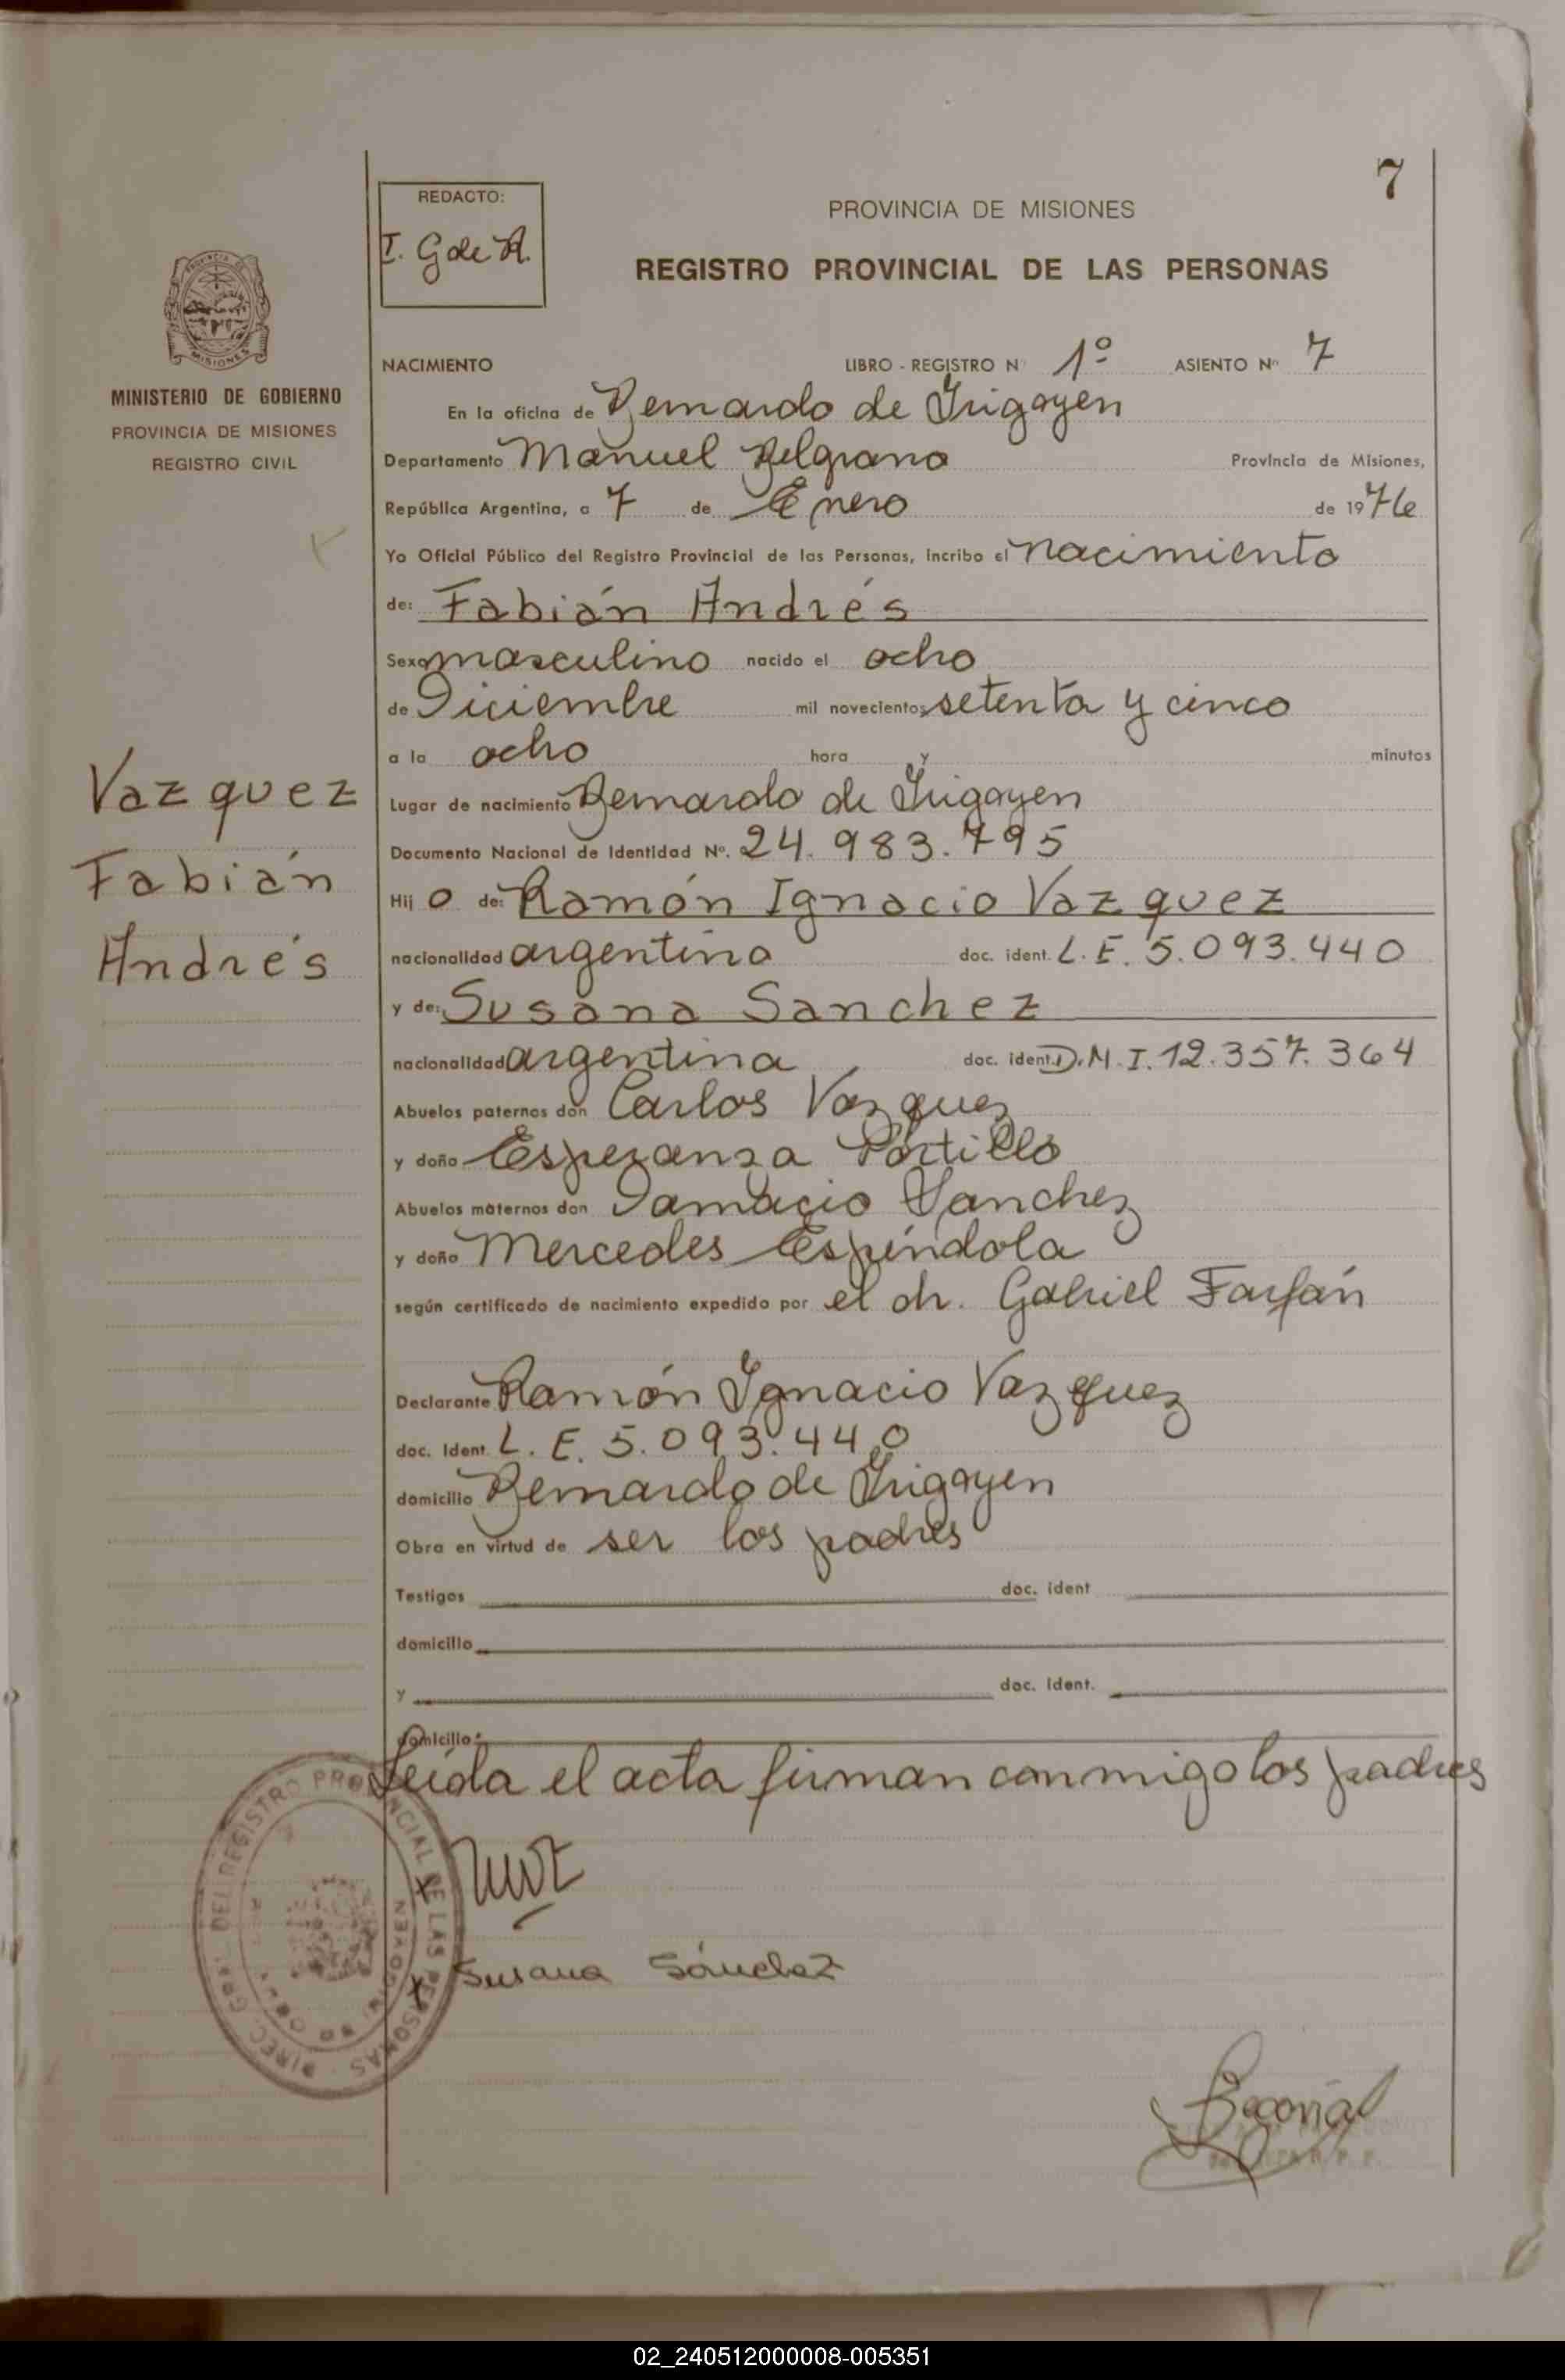 7
REDACTO:
I. G de R.
PROVINCIA DE MISIONES
REGISTRO PROVINCIAL DE LAS PERSONAS
MISIONES
MINISTERIO DE GOBIERNO
PROVINCIA DE MISIONES
REGISTRO CIVIL
NACIMIENTO LIBRO - REGISTRO Nº 1º ASIENTO Nº 7
En la oficina de Bernardo de Irigoyen
Departamento Manuel Belgrano Provincia de Misiones,
República Argentina, a 7 de Enero de 1976
Yo Oficial Público del Registro Provincial de las Personas, incribo el nacimiento
de: Fabián Andrés
Sexo masculino nacido el ocho
de Diciembre mil novecientos setenta y cinco
a la ocho hora y minutos
Lugar de nacimiento Bernardo de Irigoyen
Documento Nacional de Identidad Nº. 24.983.795
Hij o de: Ramón Ignacio Vazquez
nacionalidad argentina doc. ident. L.E. 5.093.440
y de: Susana Sanchez
nacionalidad argentina doc. ident. D.N.I. 12.357.364
Abuelos paternos don Carlos Vazquez
y doña Esperanza Portillo
Abuelos maternos don Damacio Sanchez
y doña Mercedes Espíndola
según certificado de nacimiento expedido por el dr. Gabriel Farfán
Declarante Ramón Ignacio Vazquez
doc. Ident. L.E. 5.093.440
domicilio Bernardo de Irigoyen
Obra en virtud de ser los padres
Testigos doc. ident
domicilio
y doc. Ident.
domicilio
Leída el acta firman conmigo los padres
Vazquez
Fabián
Andrés
x
x Susana Sánchez
DIREC. GRAL. DEL REGISTRO PROVINCIAL DE LAS PERSONAS
02_240512000008-005351